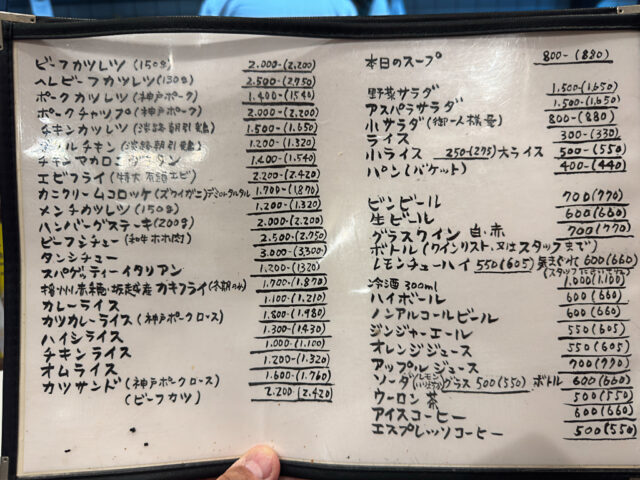 ビーフカツレツ(150g) 2.000-(2.200)
ヘレビーフカツレツ(130g) 2.500-(2.750)
ポークカツレツ(神戸ポーク) 1.400-(1.540)
ポークチャップ(神戸ポーク) 2.000-(2.200)
チキンカツレツ(淡路朝引鶏) 1.500-(1.650)
チキン(淡路朝引鶏) 1.200-(1.320)
チキンマカロニグラタン 1.400-(1.540)
エビフライ(特大有頭エビ) 2.200-(2.420)
カニクリームコロッケ(ズワイガニ)デミorタルタル 1.700-(1.870)
メンチカツレツ(150g) 1.200-(1.320)
ハンバーグステーキ(200g) 2.000-(2.200)
ビーフシチュー(和牛ホホ肉) 2.500-(2.750)
タンシチュー 3.000-(3.300)
スパゲッティーイタリアン 1.200-(1320)
播州赤穂・坂越産カキフライ(冬期のみ) 1.700-(1.870)
カレーライス 1.100-(1.210)
カツカレーライス(神戸ポークロース) 1.800-(1.980)
ハイシライス 1.300-(1.430)
チキンライス 1.000-(1.100)
オムライス 1.200-(1.320)
カツサンド(神戸ポークロース) 1.600-(1.760)
(ビーフカツ) 2.200-(2.420)
本日のスープ 800-(880)
野菜サラダ 1.500-(1.650)
アスパラサラダ 1.500-(1.650)
小サラダ(御一人様量) 800-(880)
ライス 300-(330)
小ライス 250-(275) 大ライス 500-(550)
パン(バケット) 400-(440)
ビンビール 700(770)
生ビール 600(660)
グラスワイン 白・赤 700(770)
ボトル(ワインリスト、又はスタッフまで)
レモンチューハイ 550(605) 気まぐれで 600(660)
(スタッフにきいてネ)
冷酒 300ml 1.000(1.100)
ハイボール 600(660)
ノンアルコールビール 600(660)
ジンジャーエール 550(605)
オレンジジュース 550(605)
アップルジュース 700(770)
ソーダ グラス 500(550) ボトル 600(660)
ウーロン茶 500(550)
アイスコーヒー 600(660)
エスプレッソコーヒー 500(550)